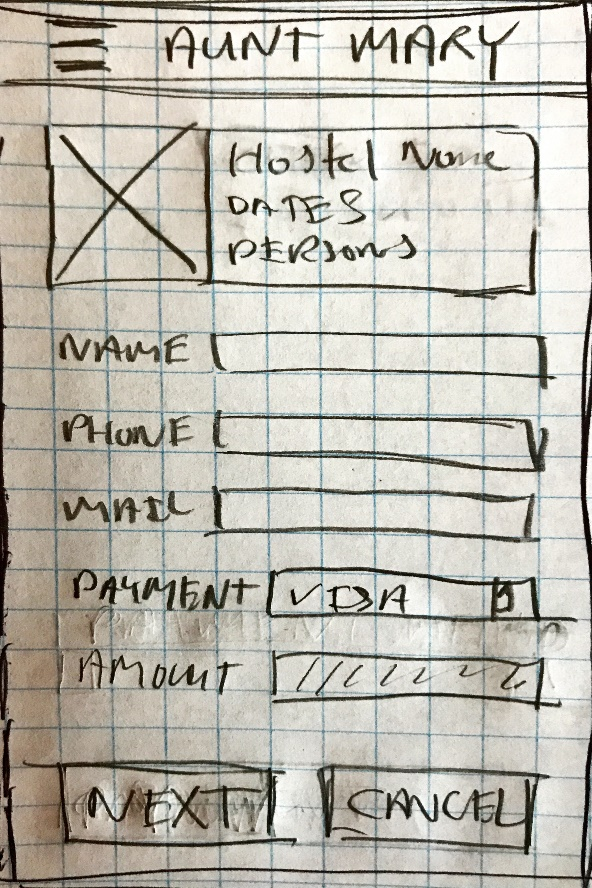 AUNT MARY
Hostel Name
DATES
PERSONS
NAME
PHONE
MAIL
PAYMENT VISA
AMOUNT
NEXT CANCEL